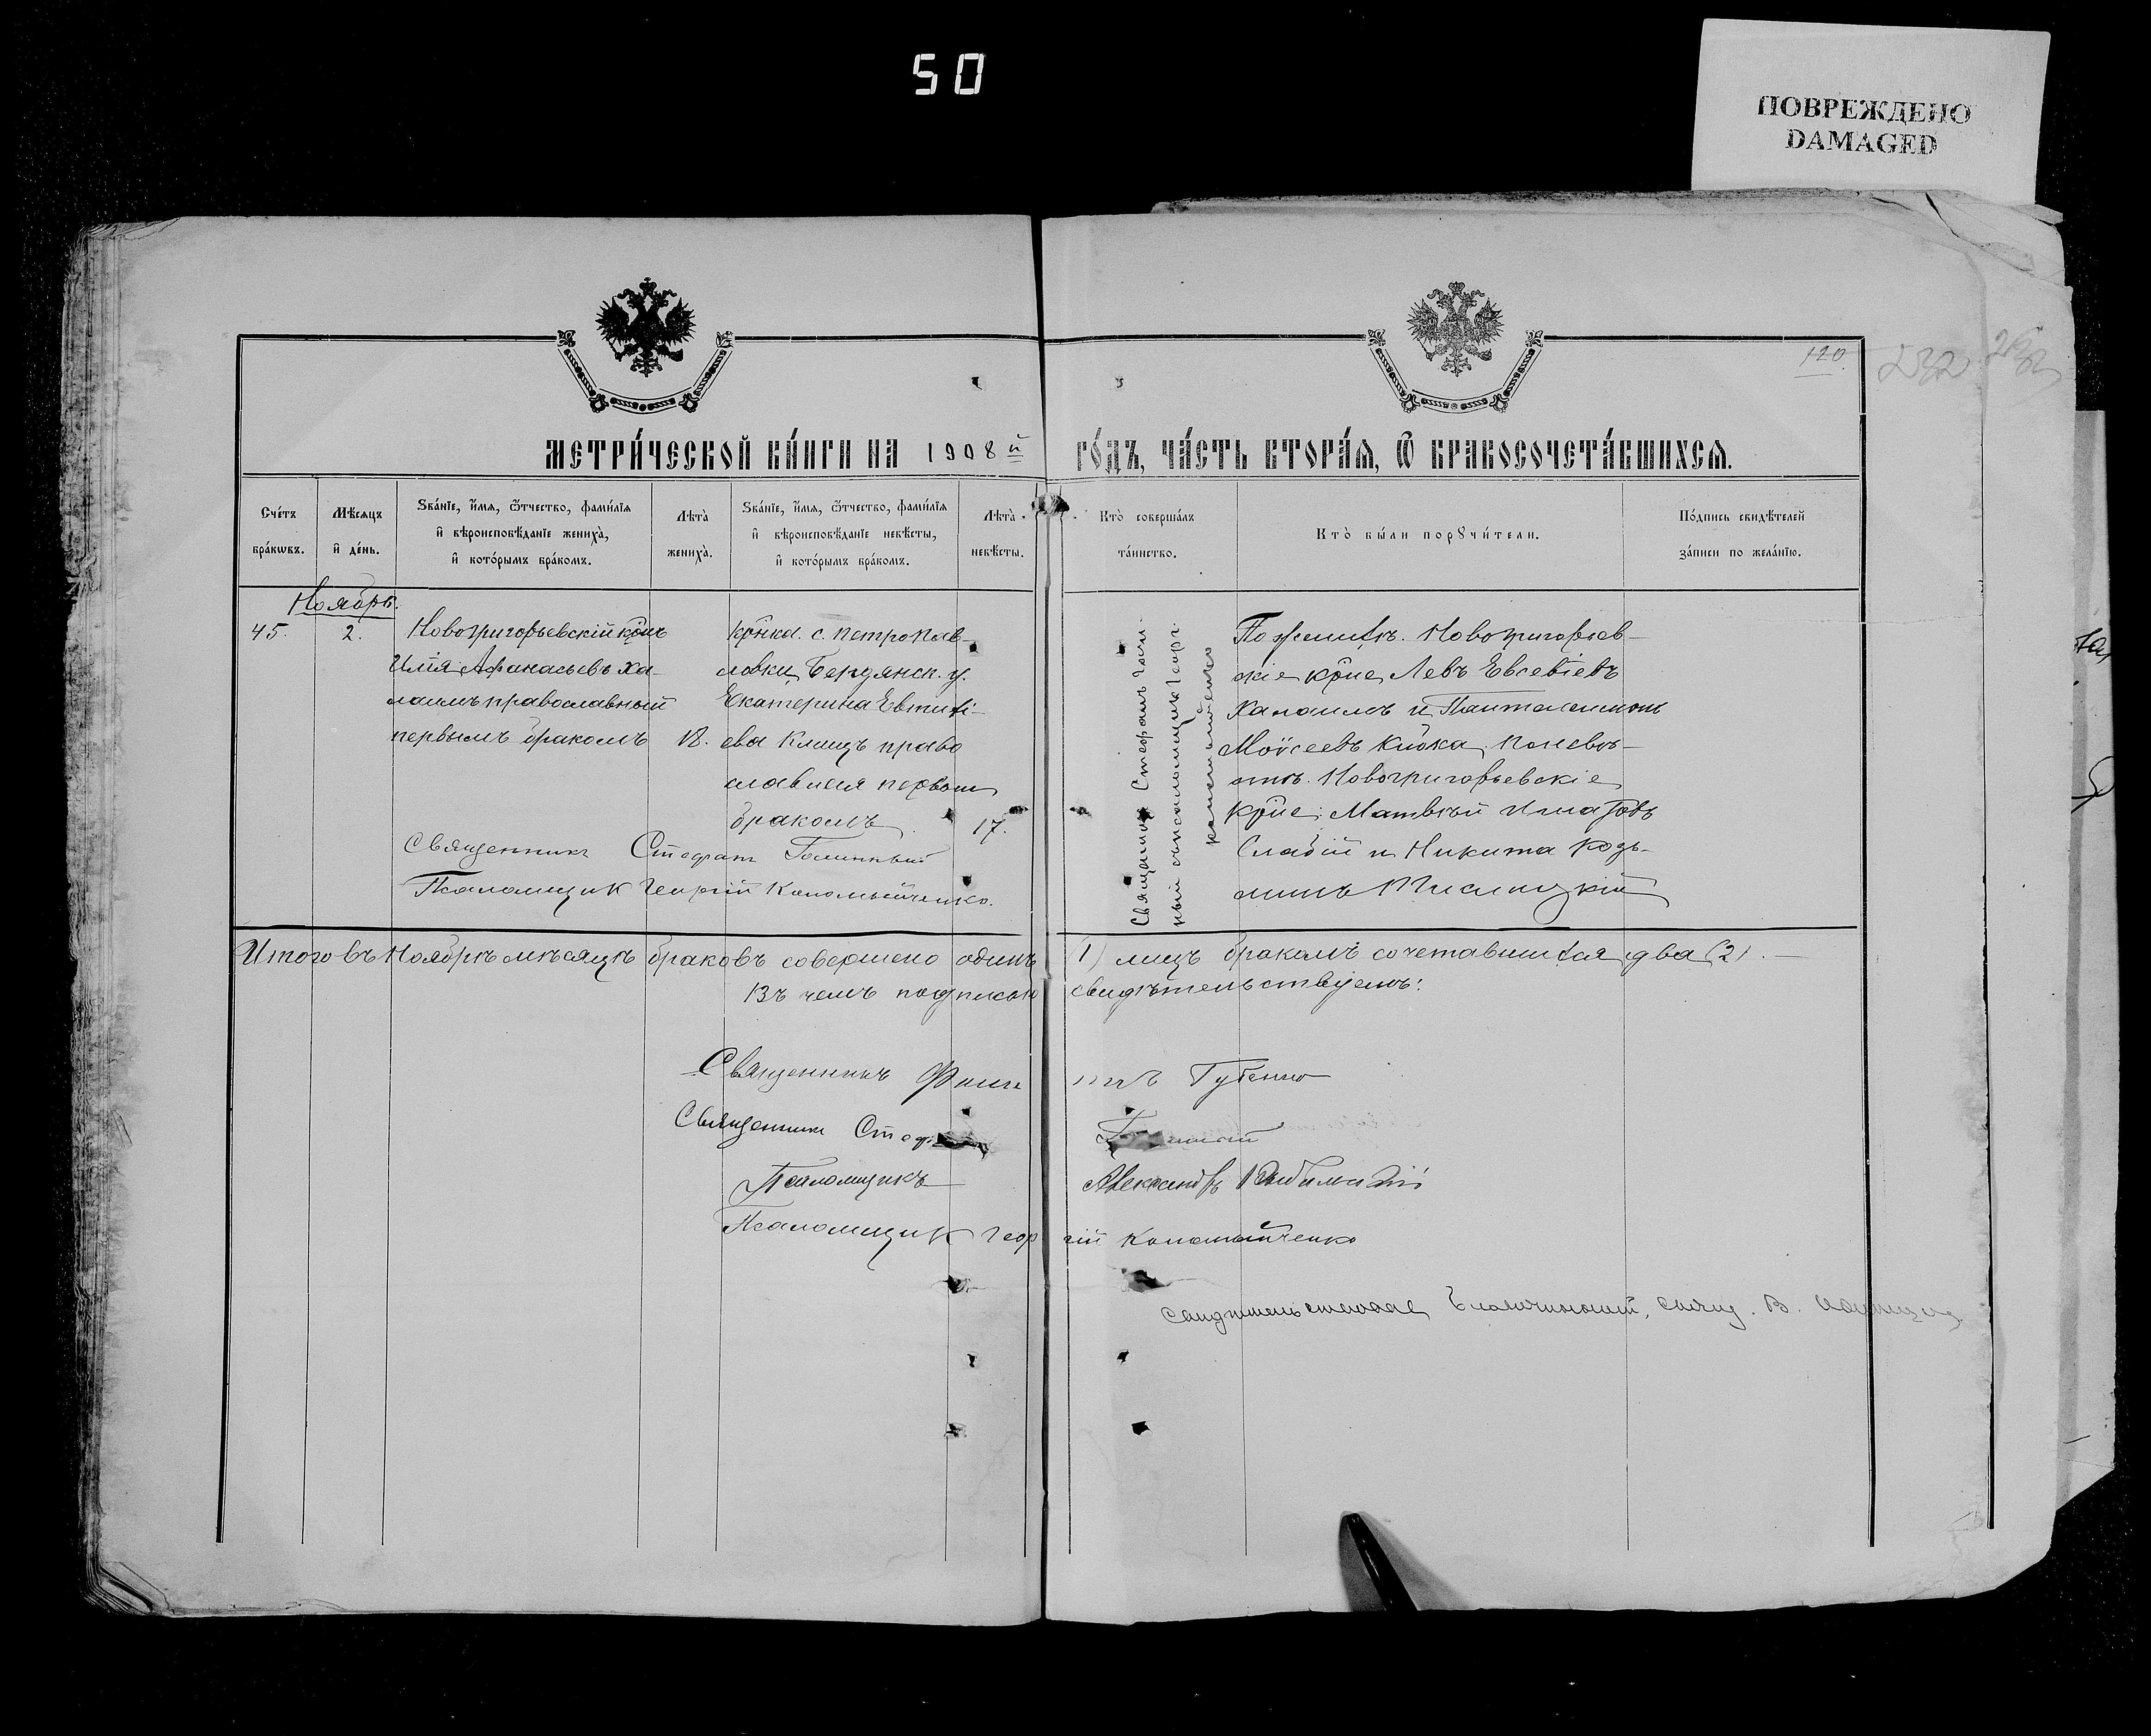 50
ПОВРЕЖДЕНО
DAMAGED
120
232
МЕТРИ́ЧЕСКОЙ КНИ́ГИ НА 1908 й ГО́ДЪ, ЧА́СТЬ ВТОРА́Я, Ѽ БРАКОСОЧЕТА́ВШИХСЯ.
Сче́тъ бра́кѡвъ.
Мѣ́сяцъ и҆ де́нь.
Ѕва́нїе, и҆́мя, ѻ҆́тчество, фами́лїя и҆ вѣроисповѣ́данїе жениха̀, и҆ кото́рымъ бра́комъ.
Лѣта̀ жениха̀.
Ѕва́нїе, и҆́мя, ѻ҆́тчество, фами́лїя и҆ вѣроисповѣ́данїе невѣ́сты, и҆ кото́рымъ бра́комъ.
Лѣта̀ невѣ́сты.
Кто̀ соверша́лъ та́инство.
Кто̀ бы́ли порꙋчи́тели.
По́дпись свидѣ́телей за́писи по жела́нїю.
Ноябрь.
45.
2.
Новогригорьевскій крнъ
Илія Афанасьевъ Ха-
лаимъ православный
первымъ бракомъ
18.
крнка с. Петропав-
ловки, Бердянск. у.
Екатерина Евтихі-
ева Клищъ право
славная первым
бракомъ
17.
Священникъ Стефанъ Голинный
Псаломщик Георгій Коломыйченко.
Священникъ Стефанъ Голин-
ный съ псаломщик. Георг.
Коломыйченко
По женихѣ. Новогригорьев-
скіе крне Левъ Евсевіевъ
Халаимъ и Пантелеимонъ
Моѵсеевъ Кибка, по невѣ-
стѣ. Новогригорьевскіе
крне: Матвѣй Игнатовъ
Слабій и Никита Козь-
минъ
Итого въ Ноябрѣ мѣсяцѣ браковъ совершено одинъ (1) лицъ бракомъ сочетавшихся два (2). —
Въ чемъ подписью свидѣтельствуемъ:
Священникъ Губенко
Священникъ Стеф
Псаломщикъ Александръ
Псаломщик Георгій Коломыйченко
Благочинный, свящ. В.